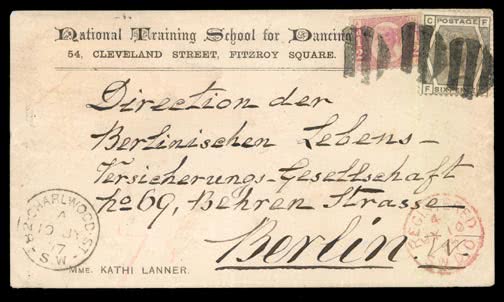 National Training School for Dancing
54, CLEVELAND STREET, FITZROY SQUARE.
C POSTAGE F
F SIX C
Direction der
Berlinischen Lebens-
Versicherungs-Gesellschaft
No 69, Behren Strasse
Berlin. W.
CHARLWOOD-ST
S.W
REGISTERED
MME. KATHI LANNER.